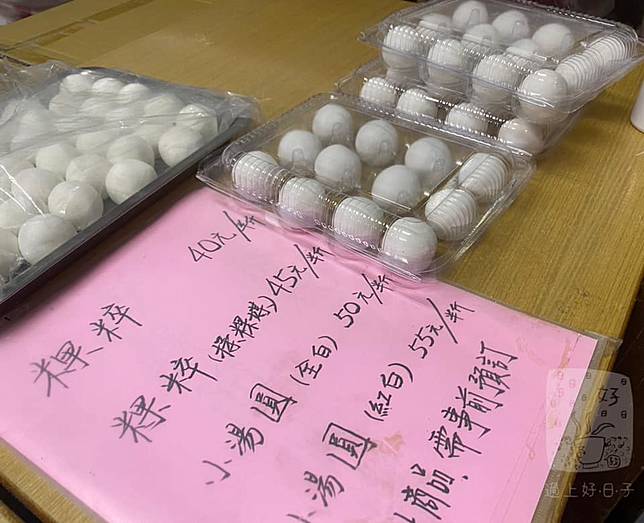 粿粹 40元/斤
粿粹 45元/斤
小湯圓(全白) 50元/斤
小湯圓(紅白) 55元/斤
商品.需事前預訂
好
過上好·日·子